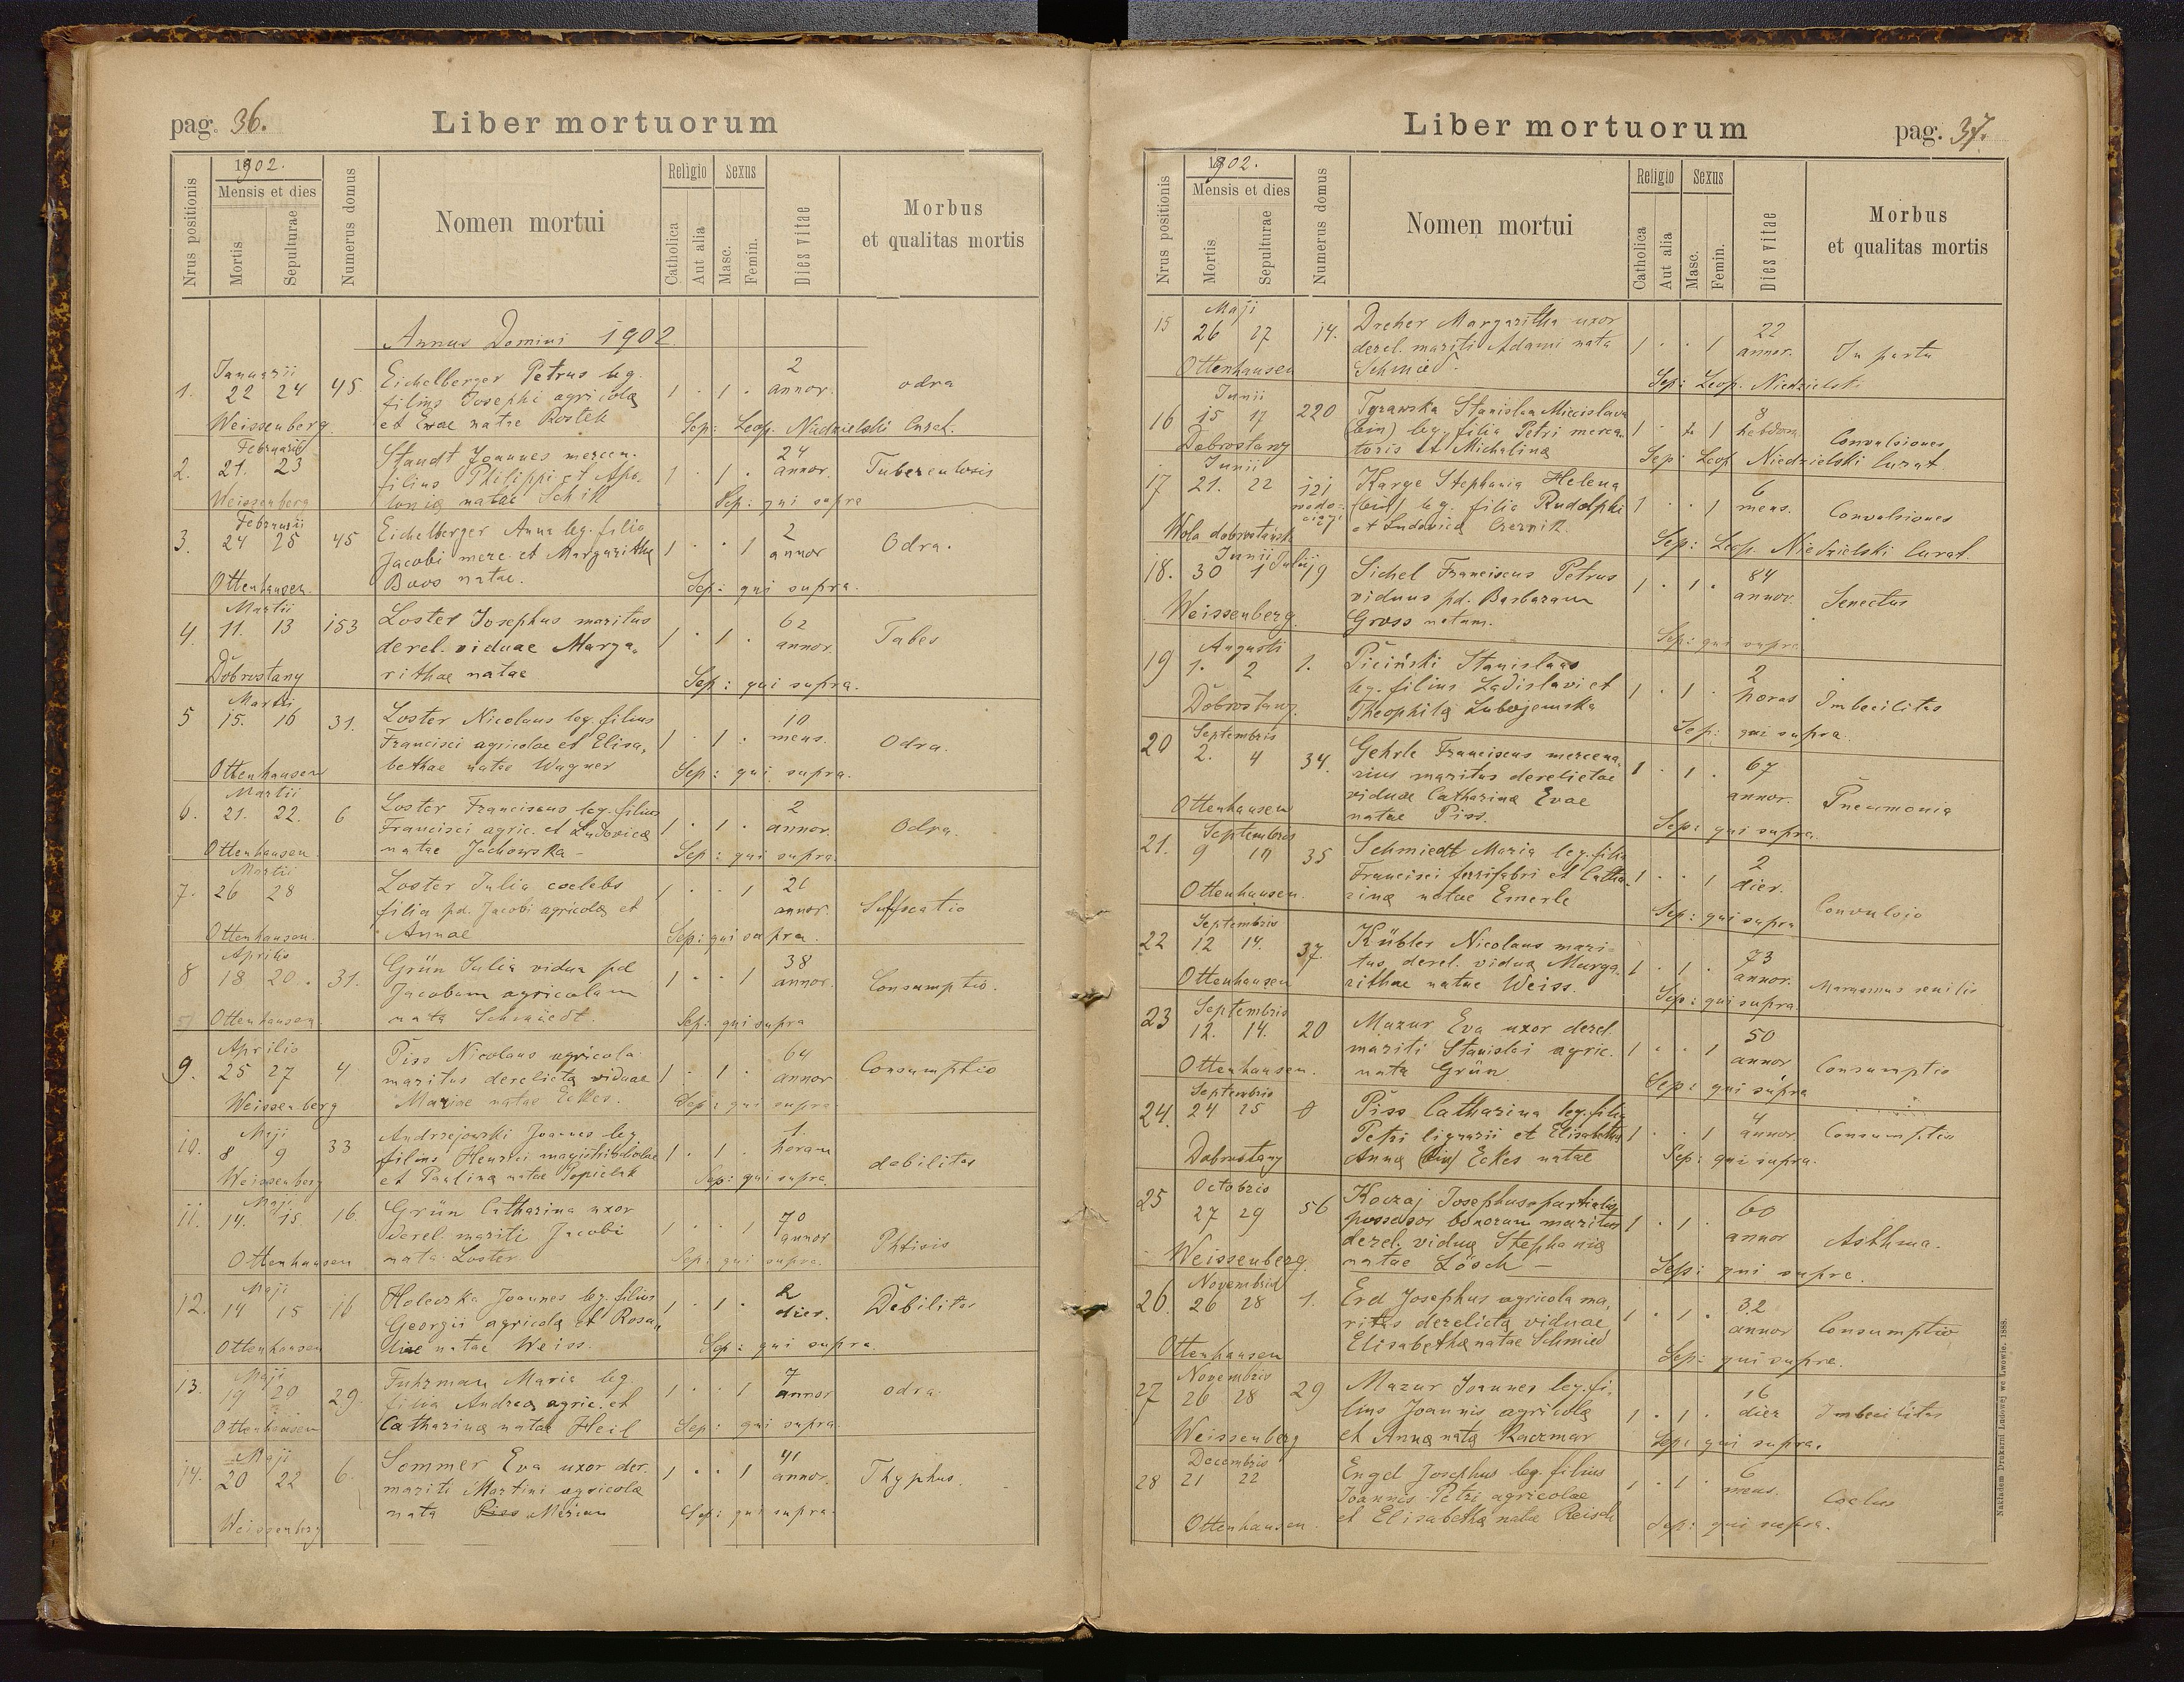 pag. 36.
Liber mortuorum
Nrus positionis
1902.
Mensis et dies
Mortis
Sepulturae
Numerus domus
Nomen mortui
Religio
Catholica
Aut alia
Sexus
Masc.
Femin.
Dies vitae
Morbus
et qualitas mortis
Annus Domini 1902.
Januarii
1. 22 24 45. Eichelberger Petrus leg. 1 · 1 · 2 annor. odra
filius Josephi agricolą
Weissenberg. et Evae natae Rostek Sep: Leop. Niedzielski Curat.
Februarii
2. 21. 23 Standt Joannes mercen. 1 · 1 · 24 annor. Tuberculosis
filius Philippi et Apo-
Weissenberg lonią natae Schik Sep: qui supra
Februarii
3. 24 25 45 Eichelberger Anna leg. filia 1 · · 1 2 annor Odra.
Jacobi merc. et Margarithą
Ottenhausen. Boos natae. Sep: qui supra.
Martii
4 11. 13 153 Loster Josephus maritus 1 · 1 · 62 annor. Tabes
derel. viduae Marga-
Dobrostany rithae natae Sep: qui supra.
Martii
5 15. 16 31. Loster Nicolaus leg. filius 1 · 1 · 10 mens. Odra.
Francisci agricolae et Elisa-
Ottenhausen bethae natae Wagner Sep: qui supra.
Martii
6. 21. 22. 6 Loster Franciscus leg. filius 1 · 1 · 2 annor. Odra.
Francisci agric. et Ludovicą
Ottenhausen. natae Jachowska – Sep: qui supra.
Martii
7. 26 28 Loster Julia coelebs 1 · · 1 21 annor. Suffocatio
filia pd. Jacobi agricolą et
Ottenhausen. Annae Sep: qui supra.
Aprilis
8 18 20. 31. Grün Julia vidua pd 1 · · 1 38 annor. Consumptio.
Jacobum agricolam
Ottenhausen. nata Schmiedt. Sep: qui supra
Aprilis
9. 25 27 4 Piss Nicolaus agricola 1 · 1 · 64 annor Consumptio
maritus derelictą viduae
Weissenberg Mariae natae Eckes. Sep: qui supra.
Maji
10. 8 9 33 Andrzejowski Joannes leg 1 · 1 · 1. horam debilitas
filius Henrici magistri scholae
Weissenberg et Pauliną natae Popielak Sep: qui supra.
Maji
11. 14. 15. 16. Grün Catharina uxor 1 · · 1 70 annor Phtisis
derel. mariti Jacobi
Ottenhausen nata Loster Sep: qui supra.
Maji
12. 14 15 16 Holeczka Joannes leg. filius 1 · 1 · 2 dies. Debilitas
Georgii agricolą et Rosa-
Ottenhausen liae natae Weiss. Sep: qui supra
Maji
13. 19 20 29. Fuhrman Maria leg. 1 · · 1 7 annor odra.
filia Andreą agric. et
Ottenhausen Cathariną natae Heil Sep: qui supra.
Maji
14. 20 22 6. Sommer Eva uxor der. 1 · · 1 41 annor. Thyphus.
mariti Martini agricolą
Weissenberg nata Piss Merian Sep: qui supra.
Liber mortuorum
pag. 37.
Nrus positionis
1902.
Mensis et dies
Mortis
Sepulturae
Numerus domus
Nomen mortui
Religio
Catholica
Aut alia
Sexus
Masc.
Femin.
Dies vitae
Morbus
et qualitas mortis
Maji
15 26 27 14. Dreher Margaritha uxor 1 · · 1 22 annor. In partu
derel. mariti Adami nata
Ottenhausen Schmied. Sep: Leop. Niedzielski
Junii
16 15 17 220 Tyrawska Stanislaa Miecislava 1 · 1 8 hebdom. Convulsiones
(bin) leg. filia Petri merca-
Dobrostany toris et Michaliną Sep: Leop Niedzielski Curat
Junii
17 21. 22 121 Karge Stephania Helena 1 · · 1 6 mens. Convulsiones
(bin) leg. filia Rudolphi
Wola dobrostańska et Ludovicą Czernik. Sep: Leop. Niedzielski Curat.
Junii Julii
18. 30 1 19 Sichel Franciscus Petrus 1 · 1 · 84 annor. Senectus
viduus pd. Barbaram
Weissenberg. Gross natam. Sep: qui supra
Augusti
19 1. 2 1. Piciński Stanislaus 1 · 1 · 2 horas Imbecilitas
leg. filius Ladislavi et
Dobrostany. Theophilą Lubojemska Sep: qui supra.
Septembris
20 2. 4 34. Gehrle Franciscus mercena- 1 · 1 · 67 annor. Pneumonia
rius maritus derelictae
viduae Catharinae Evae
Ottenhausen natae Piss. Sep: qui supra.
Septembris
21. 9 10 35 Schmiedt Maria leg. filia 1 · · 1 2 dier. Convulsio
Francisci ferrifabri et Catha-
Ottenhausen. riną natae Emerle Sep: qui supra
Septembris
22 12 14. 37. Kübler Nicolaus mari- 1 · 1 · 73 annor. Marasmus senilis
tus derel. viduą Marga-
Ottenhausen rithae natae Weiss. Sep: qui supra.
Septembris
23 12. 14. 20 Mazur Eva uxor derel. 1 · · 1 50 annor Consumptio
mariti Stanislai agric.
Ottenhausen. nata Grün Sep: qui supra
Septembris
24. 24 25 Piss Catharina leg. filia 1 · · 1 4 annor. Consumptio
Petri lignarii et Elisabetha
Dobrostany Anną (bin) Eckes natae Sep: qui supra.
Octobris
25 27 29 56 Koczaj Josephus partialis 1 · 1 · 60 annor Asthma.
possesor bonorum maritus
derel. viduą Stephanią
Weissenberg. natae Lösch – Sep: qui supra.
Novembris
26. 26 28 1. Erd Josephus agricola ma- 1 · 1 · 32 annor Consumptio
ritus derelictą viduae
Ottenhausen Elisabethą natae Schmied Sep: qui supra.
Novembris
27 26 28 29 Mazur Joannes leg. fi- 1 · 1 · 16 dier Imbecilitas
lius Joannis agricolą
Weissenberg et Anną natą Kaczmar Sep: qui supra.
Decembris
28 21 22 Engel Josephus leg. filius 1 · 1 · 6 mens.
Joannis Petri agricolae
Ottenhausen. et Elisabethą natae Reisch Sep: qui supra.
Nakładem Drukarni Ludowej we Lwowie. 1888.